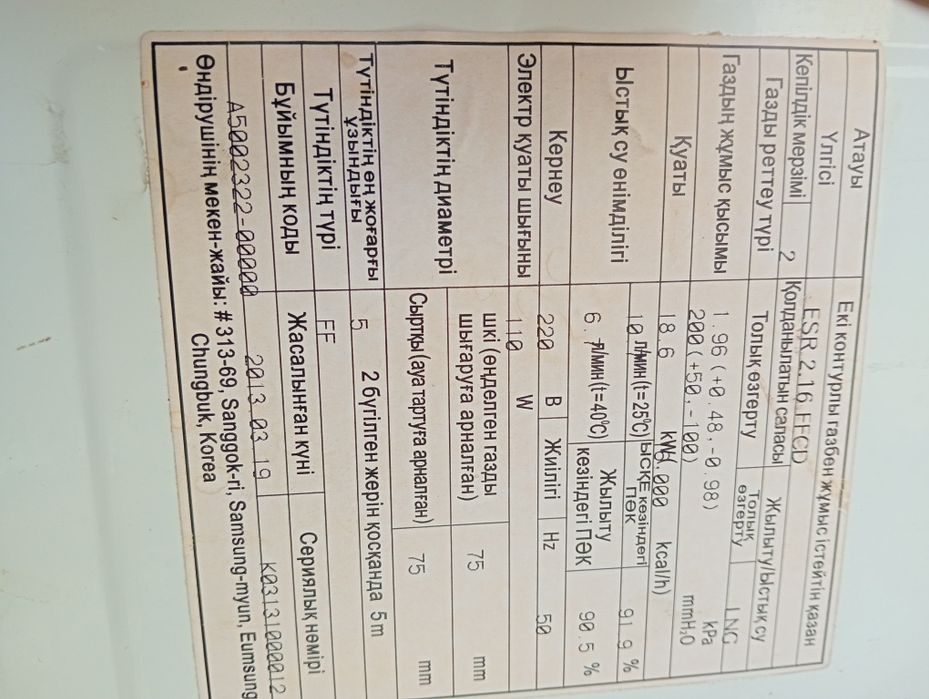 Атауы Екі контурлы газбен жұмыс істейтін қазан
Үлгісі ESR 2.16 FFCD
Кепілдік мерзімі 2 Қолданылатын саласы Жылыту/Ыстық су
Газды реттеу түрі Толық өзгерту Толық өзгерту LNG
Газдың жұмыс қысымы 1.96 (+0.48,-0.98) kPa
200(+50,-100) mmH₂O
Қуаты 18.6 kW( 000 kcal/h)
Ыстық су өнімділігі 10 л/мин(t=25℃) ЫСҚЕ кезіндегі ПӘК 91.9 %
6. л/мин(t=40℃) Жылыту кезіндегі ПӘК 90.5 %
Кернеу 220 В Жиілігі Hz 50
Электр қуаты шығыны 110 W
Түтіндіктің диаметрі шкі (өңделген газды шығаруға арналған) 75 mm
Сыртқы (ауа тартуға арналған) 75 mm
Түтіндіктің ең жоғарғы ұзындығы 5 2 бүгілген жерін қосқанда 5 m
Түтіндіктің түрі FF
Бұйымның коды Жасалынған күні Сериялық нөмірі
A5002322-00000 2013.03.19 K0313100012
Өндірушінің мекен-жайы: # 313-69, Sanggok-ri, Samsung-myun, Eumsung
Chungbuk, Korea